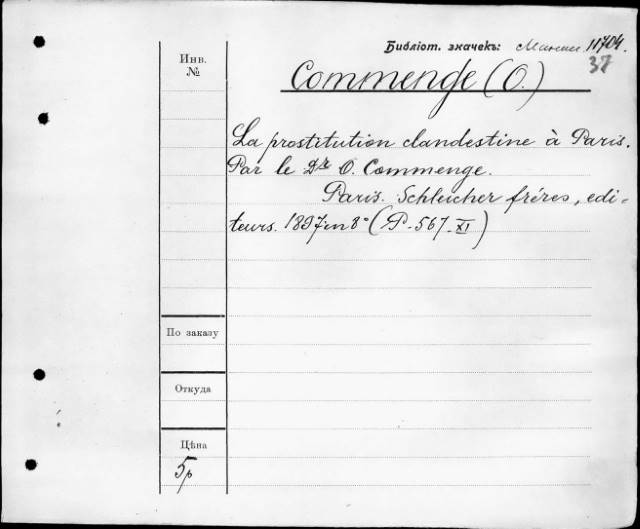 Библіот. значекъ: 11704
37
Инв.
№
Commenge (O.)
La prostitution clandestine à Paris.
Par le Dr O. Commenge.
Paris. Schleicher fréres, edi-
teurs. 1897 in 8° (P. 567-XI)
По заказу
Откуда
Цѣна
5р